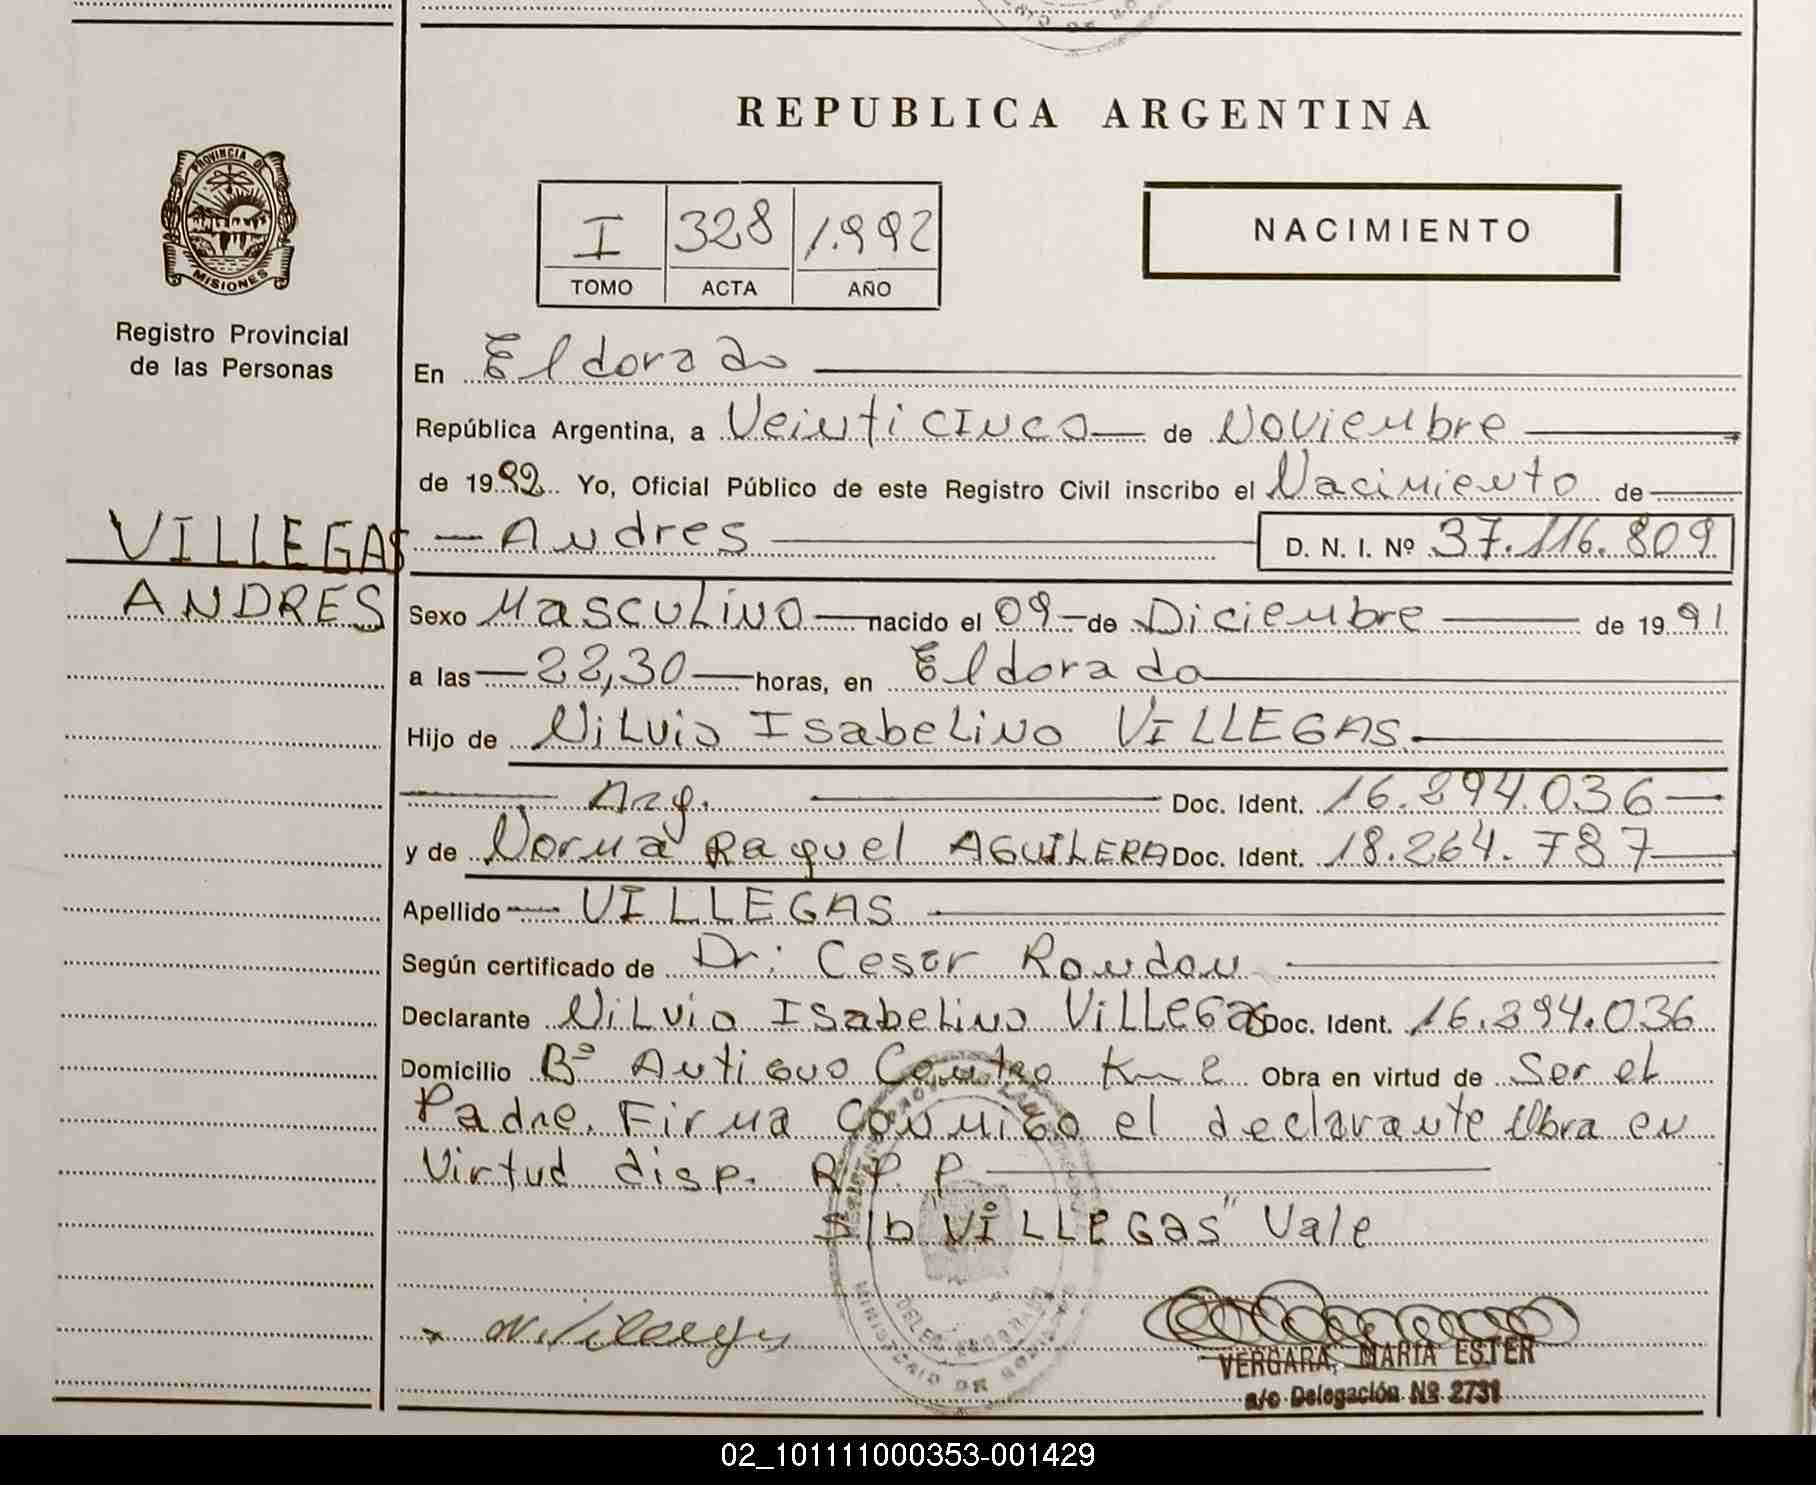 REPUBLICA ARGENTINA
PROVINCIA DE
MISIONES
Registro Provincial
de las Personas
I 328 1.992
TOMO ACTA AÑO
NACIMIENTO
En Eldorado
República Argentina, a Veinticinco de Noviembre
de 1992 Yo, Oficial Público de este Registro Civil inscribo el Nacimiento de
VILLEGAS
ANDRES
Andres D. N. I. Nº 37.116.809
Sexo Masculino nacido el 09 de Diciembre de 1991
a las 22,30 horas, en Eldorado
Hijo de Nilvio Isabelino VILLEGAS
Arg. Doc. Ident. 16.294.036
y de Norma Raquel AGUILERA Doc. Ident. 18.264.787
Apellido VILLEGAS
Según certificado de Dr: Cesar Rondon
Declarante Nilvio Isabelino VILLEGAS Doc. Ident. 16.294.036
Domicilio Bº Antiguo Centro Km 2 Obra en virtud de Ser el
Padre. Firma Conmigo el declarante Obra en
Virtud disp. R.P.P
S/b "VILLEGAS" Vale
VERGARA, MARIA ESTER
a/c Delegación Nº 2731
02_101111000353-001429